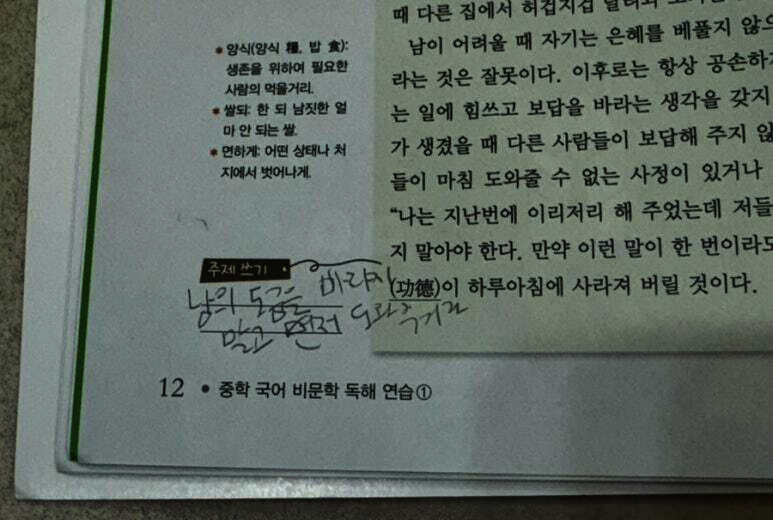 * 양식(양식 糧, 밥 食):
생존을 위하여 필요한
사람의 먹을거리.
* 쌀되: 한 되 남짓한 얼
마 안 되는 쌀.
* 면하게: 어떤 상태나 처
지에서 벗어나게.
때 다른 집에서 허겁지겁 달려와
남이 어려울 때 자기는 은혜를 베풀지 않으
라는 것은 잘못이다. 이후로는 항상 공손하
는 일에 힘쓰고 보답을 바라는 생각을 갖지
가 생겼을 때 다른 사람들이 보답해 주지 않
들이 마침 도와줄 수 없는 사정이 있거나
“나는 지난번에 이리저리 해 주었는데 저들
지 말아야 한다. 만약 이런 말이 한 번이라도
(功德)이 하루아침에 사라져 버릴 것이다.
주제 쓰기
남의 도움을 바라지
말고 먼저 도와주거라
12 • 중학 국어 비문학 독해 연습①